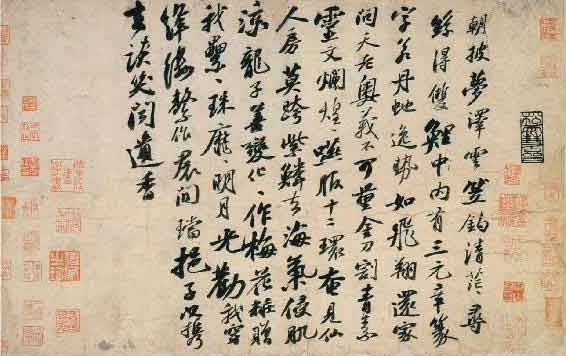 朝披夢澤雲笠釣清茫〻尋
絲得雙鯉中內有三元章篆
字若丹蛇逸勢如飛翔還家
問天老奧義不可量金刀割青素
靈文爛煌〻嚥服十二環奄見仙
人房莫跨紫鱗去海氣侵肌
涼龍子善變化〻作梅花粧贈
我纍〻珠靡〻明月光勸我穿
絳縷繫作裙間璫挹子以攜
去談笑聞遺香